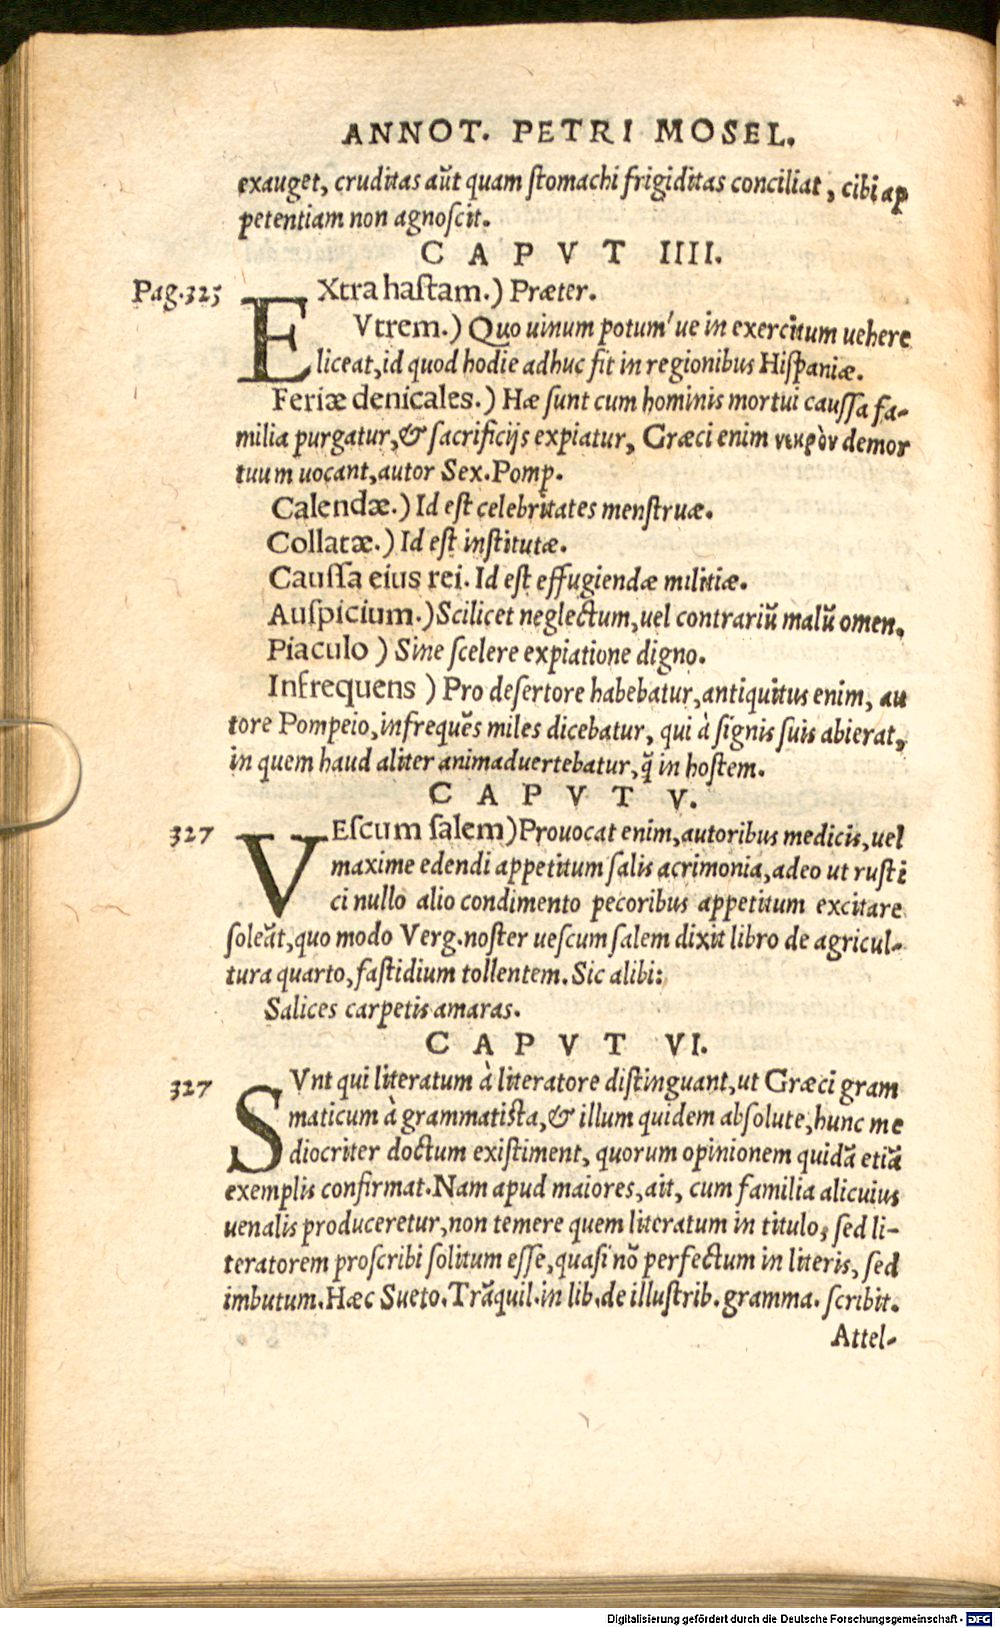 ANNOT. PETRI MOSEL.
exauget, cruditas aũt quam ſtomachi frigiditas conciliat, cibi ap
petentiam non agnoſcit.
CAPVT IIII.
Pag.325 EXtra haſtam.) Præter.
Vtrem.) Quo uinum potum'ue in exercitum uehere
liceat, id quod hodie adhuc fit in regionibus Hiſpaniæ.
Feriæ denicales.) Hæ ſunt cum hominis mortui cauſſa fa-
milia purgatur, & ſacrificijs expiatur, Græci enim νεκρὸν demor
tuum uocant, autor Sex. Pomp.
Calendæ.) Id eſt celebritates menſtruæ.
Collatæ.) Id eſt inſtitutæ.
Cauſſa eius rei. Id eſt effugiendæ militiæ.
Auſpicium.) Scilicet neglectum, uel contrariũ malũ omen.
Piaculo ) Sine ſcelere expiatione digno.
Infrequens ) Pro deſertore habebatur, antiquitus enim, au
tore Pompeio, infrequẽs miles dicebatur, qui à ſignis ſuis abierat,
in quem haud aliter animaduertebatur, q̃ in hoſtem.
CAPVT V.
327 VEſcum ſalem) Prouocat enim, autoribus medicis, uel
maxime edendi appetitum ſalis acrimonia, adeo ut ruſti
ci nullo alio condimento pecoribus appetitum excitare
ſoleãt, quo modo Verg. noſter ueſcum ſalem dixit libro de agricul-
tura quarto, faſtidium tollentem. Sic alibi:
Salices carpetis amaras.
CAPVT VI.
327 SVnt qui literatum à literatore diſtinguant, ut Græci gram
maticum à grammatiſta, & illum quidem abſolute, hunc me
diocriter doctum exiſtiment, quorum opinionem quidã etiã
exemplis confirmat. Nam apud maiores, ait, cum familia alicuius
uenalis produceretur, non temere quem literatum in titulo, ſed li-
teratorem proſcribi ſolitum eſſe, quaſi nõ perfectum in literis, ſed
imbutum. Hæc Sueto. Trãquil. in lib. de illuſtrib. gramma. ſcribit.
Attel-
Digitalisierung gefördert durch die Deutsche Forschungsgemeinschaft - DFG